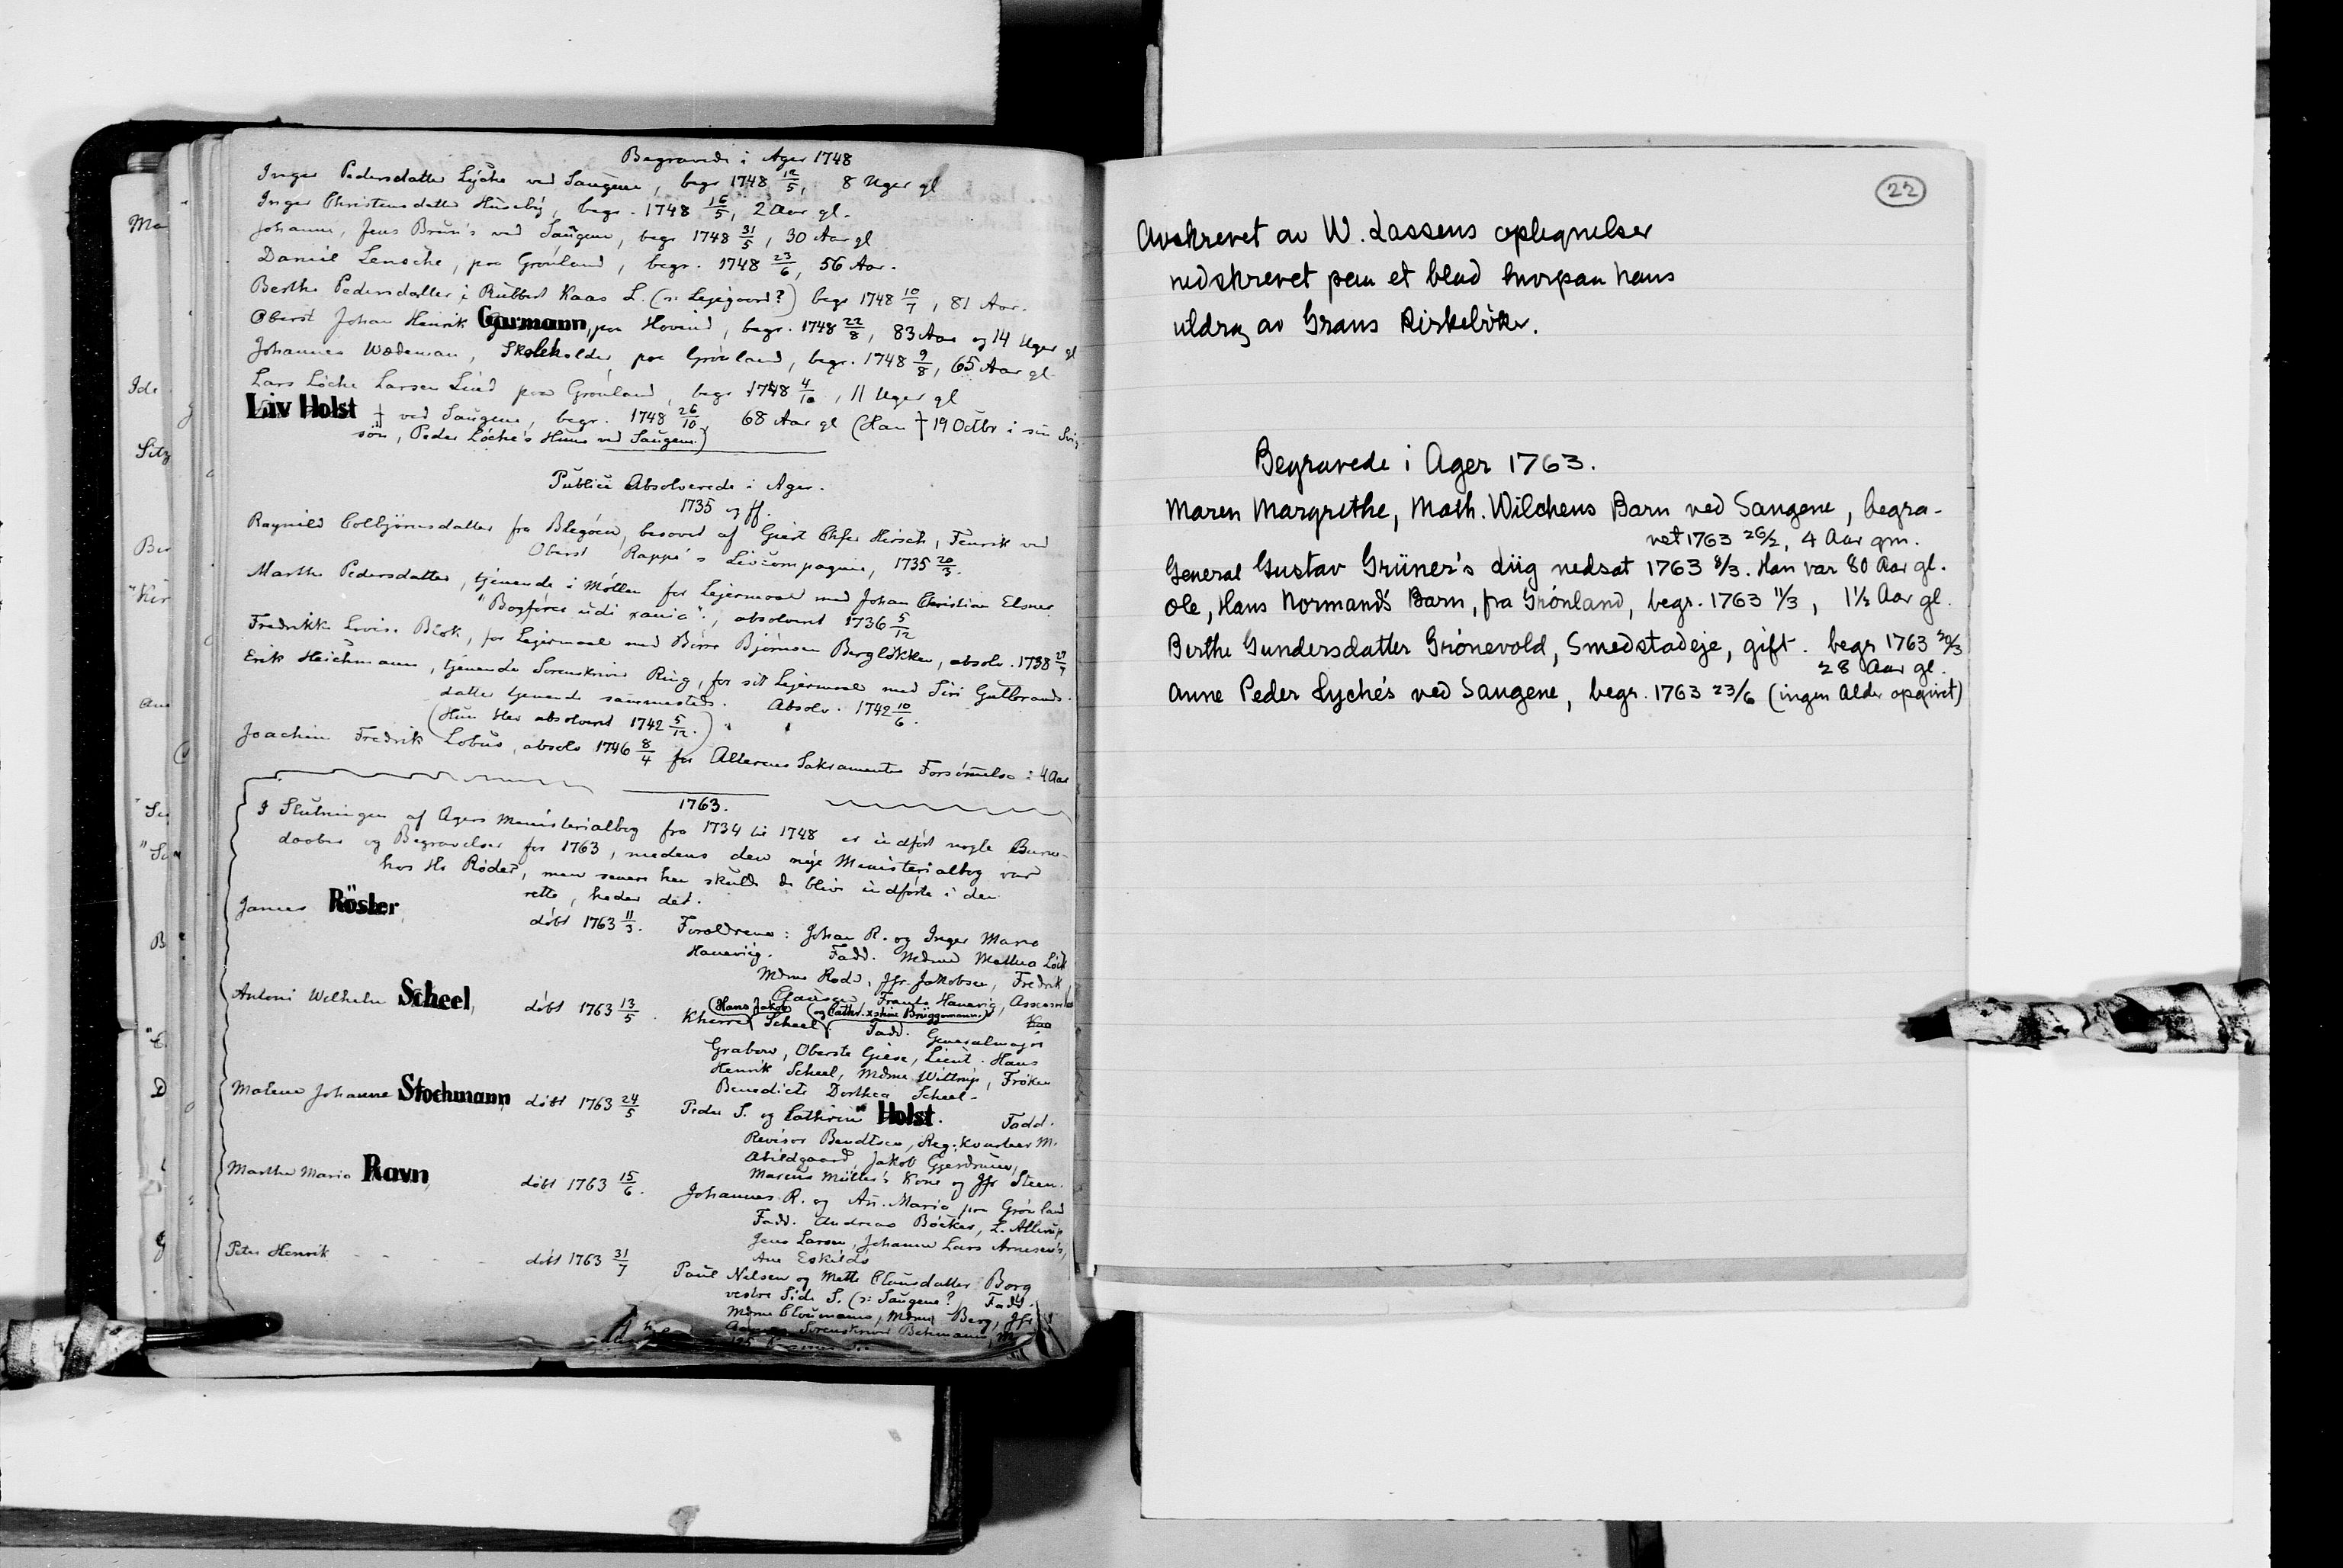 Begravede i Ager 1748
Inger Pedersdatter Lyche ved Saugene, begr 1748 12/5, 8 Uger gl
Inger Christensdatter Huseby, begr. 1748 16/5, 2 Aar gl.
Johanne, Jens Bruun's ved Saugene, begr 1748 31/5, 30 Aar gl
Daniel Lensche, paa Grønland, begr. 1748 23/6, 56 Aar.
Berthe Pedersdatter i Rubbert Kaas L. (ɔ: Lejegaard?) begr 1748 10/7, 81 Aar.
Oberst Johan Henrik Garmann, paa Hovind, begr. 1748 22/8, 83 Aar og 14 Uger gl
Johannes Wædeman, Skoleholder, paa Grønland, begr. 1748 9/8, 65 Aar gl
Lars Löche Larsen Lind paa Grønland, begr 1748 4/10, 11 Uger gl
Liv Holst ved Saugene, begr. 1748 26/10, 68 Aar gl (Han † 19 Octbr i sin Svi
søn, Peder Löche's Huus ved Saugene.)
Publice Absolverede i Ager.
1735 og ff.
Ragnild Colbjørnsdatter fra Blegøen, besovet af Giert Chfer Hirsch, Fenrik ved
Oberst Rappe's Livcompagnie, 1735 20/3.
Marthe Pedersdatter, tjenende i Møllen for Lejermaal med Johan Christian Elsner
"Bogfører udi xania", absolveret 1736 5/12
Fredrikke Lovise Blok, for Lejermaal med Børre Bjørnsen Bergløkken, absolv. 1738
Erik Heichmann, tjenende Sorenskriver Ring, for sit Lejermaal med Siri Gulbrands-
datter tjenende sammesteds. Absolv. 1742 10/6.
(Hun blev absolveret 1742 5/12.)
Joachim Fredrik Lobus, absolv 1746 8/4 for Alterens Sakramentes Forsømmelse i 4 Aar
1763.
I Slutningen af Agers Ministerialbog fra 1734 til 1748 er indført nogle Barne-
daaber og Begravelser for 1763, medens den nye Ministerialbog var
hos Hr Røder, men senere hen skulde de blive indførte i den
rette, heder det.
James Rösler, døbt 1763 11/3. Forældrene: Johan R. og Inger Marie
Haueviig. Fadd. Mdme Mathea
Mdme Rode, Jfr Jakobsen, Fredrik
Clausen, Frants Hauevig, Assessor
Antoni Wilhelm Scheel, døbt 1763 13/5. Kherre (Hans Jakob) Scheel (og Cathr. xstine Brüggemann.)
Fadd. Generalmajor
Grabow, Oberste Giese, Lieut. Hans
Henrik Scheel, Mdme Wittrup, Frøken
Benedicte Dorthea Scheel.
Malene Johanne Stochmann, døbt 1763 24/5 Peder S. og Cathrine Holst. Fadd.
Revisor Bendtsen, Reg: kvarteer M.
Abildgaard, Jakob Gjerdrum,
Marcus Müller's Kone og Jfr Steen.
Marthe Maria Ravn, døbt 1763 15/6. Johannes R. og An. Maria paa Grønland
Fadd. Andreas Böcker, L. Allerup
Jens Larsen, Johanne Lars Arnesen's,
Ane Eskilds
Peter Henrik - - - døbt 1763 31/7 Paul Nilsen og Mette Clausdatter Borg
vestre Side S. (ɔ: Saugene? Fadd.
Mdme Cloumann, Mdme Berg, Jfr
Sorenskriver Behmann, M
22
Avskrevet av W. Lassens optegnelser
nedskrevet paa et blad hvorpaa hans
utdrag av Grans Kirkebøker.
Begravede i Ager 1763.
Maren Margrethe, Math. Wilchens Barn ved Saugene, begra-
vet 1763 26/2, 4 Aar gm.
General Gustav Grüner's Liig nedsat 1763 8/3. Han var 80 Aar gl.
Ole, Hans Normand's Barn, fra Grønland, begr. 1763 11/3, 1½ Aar gl.
Berthe Gundersdatter Grønevold, Smedstadeje, gift. begr 1763 30/3
28 Aar gl.
Anne Peder Lyche's ved Saugene, begr. 1763 23/6 (ingen Alder opgivet)